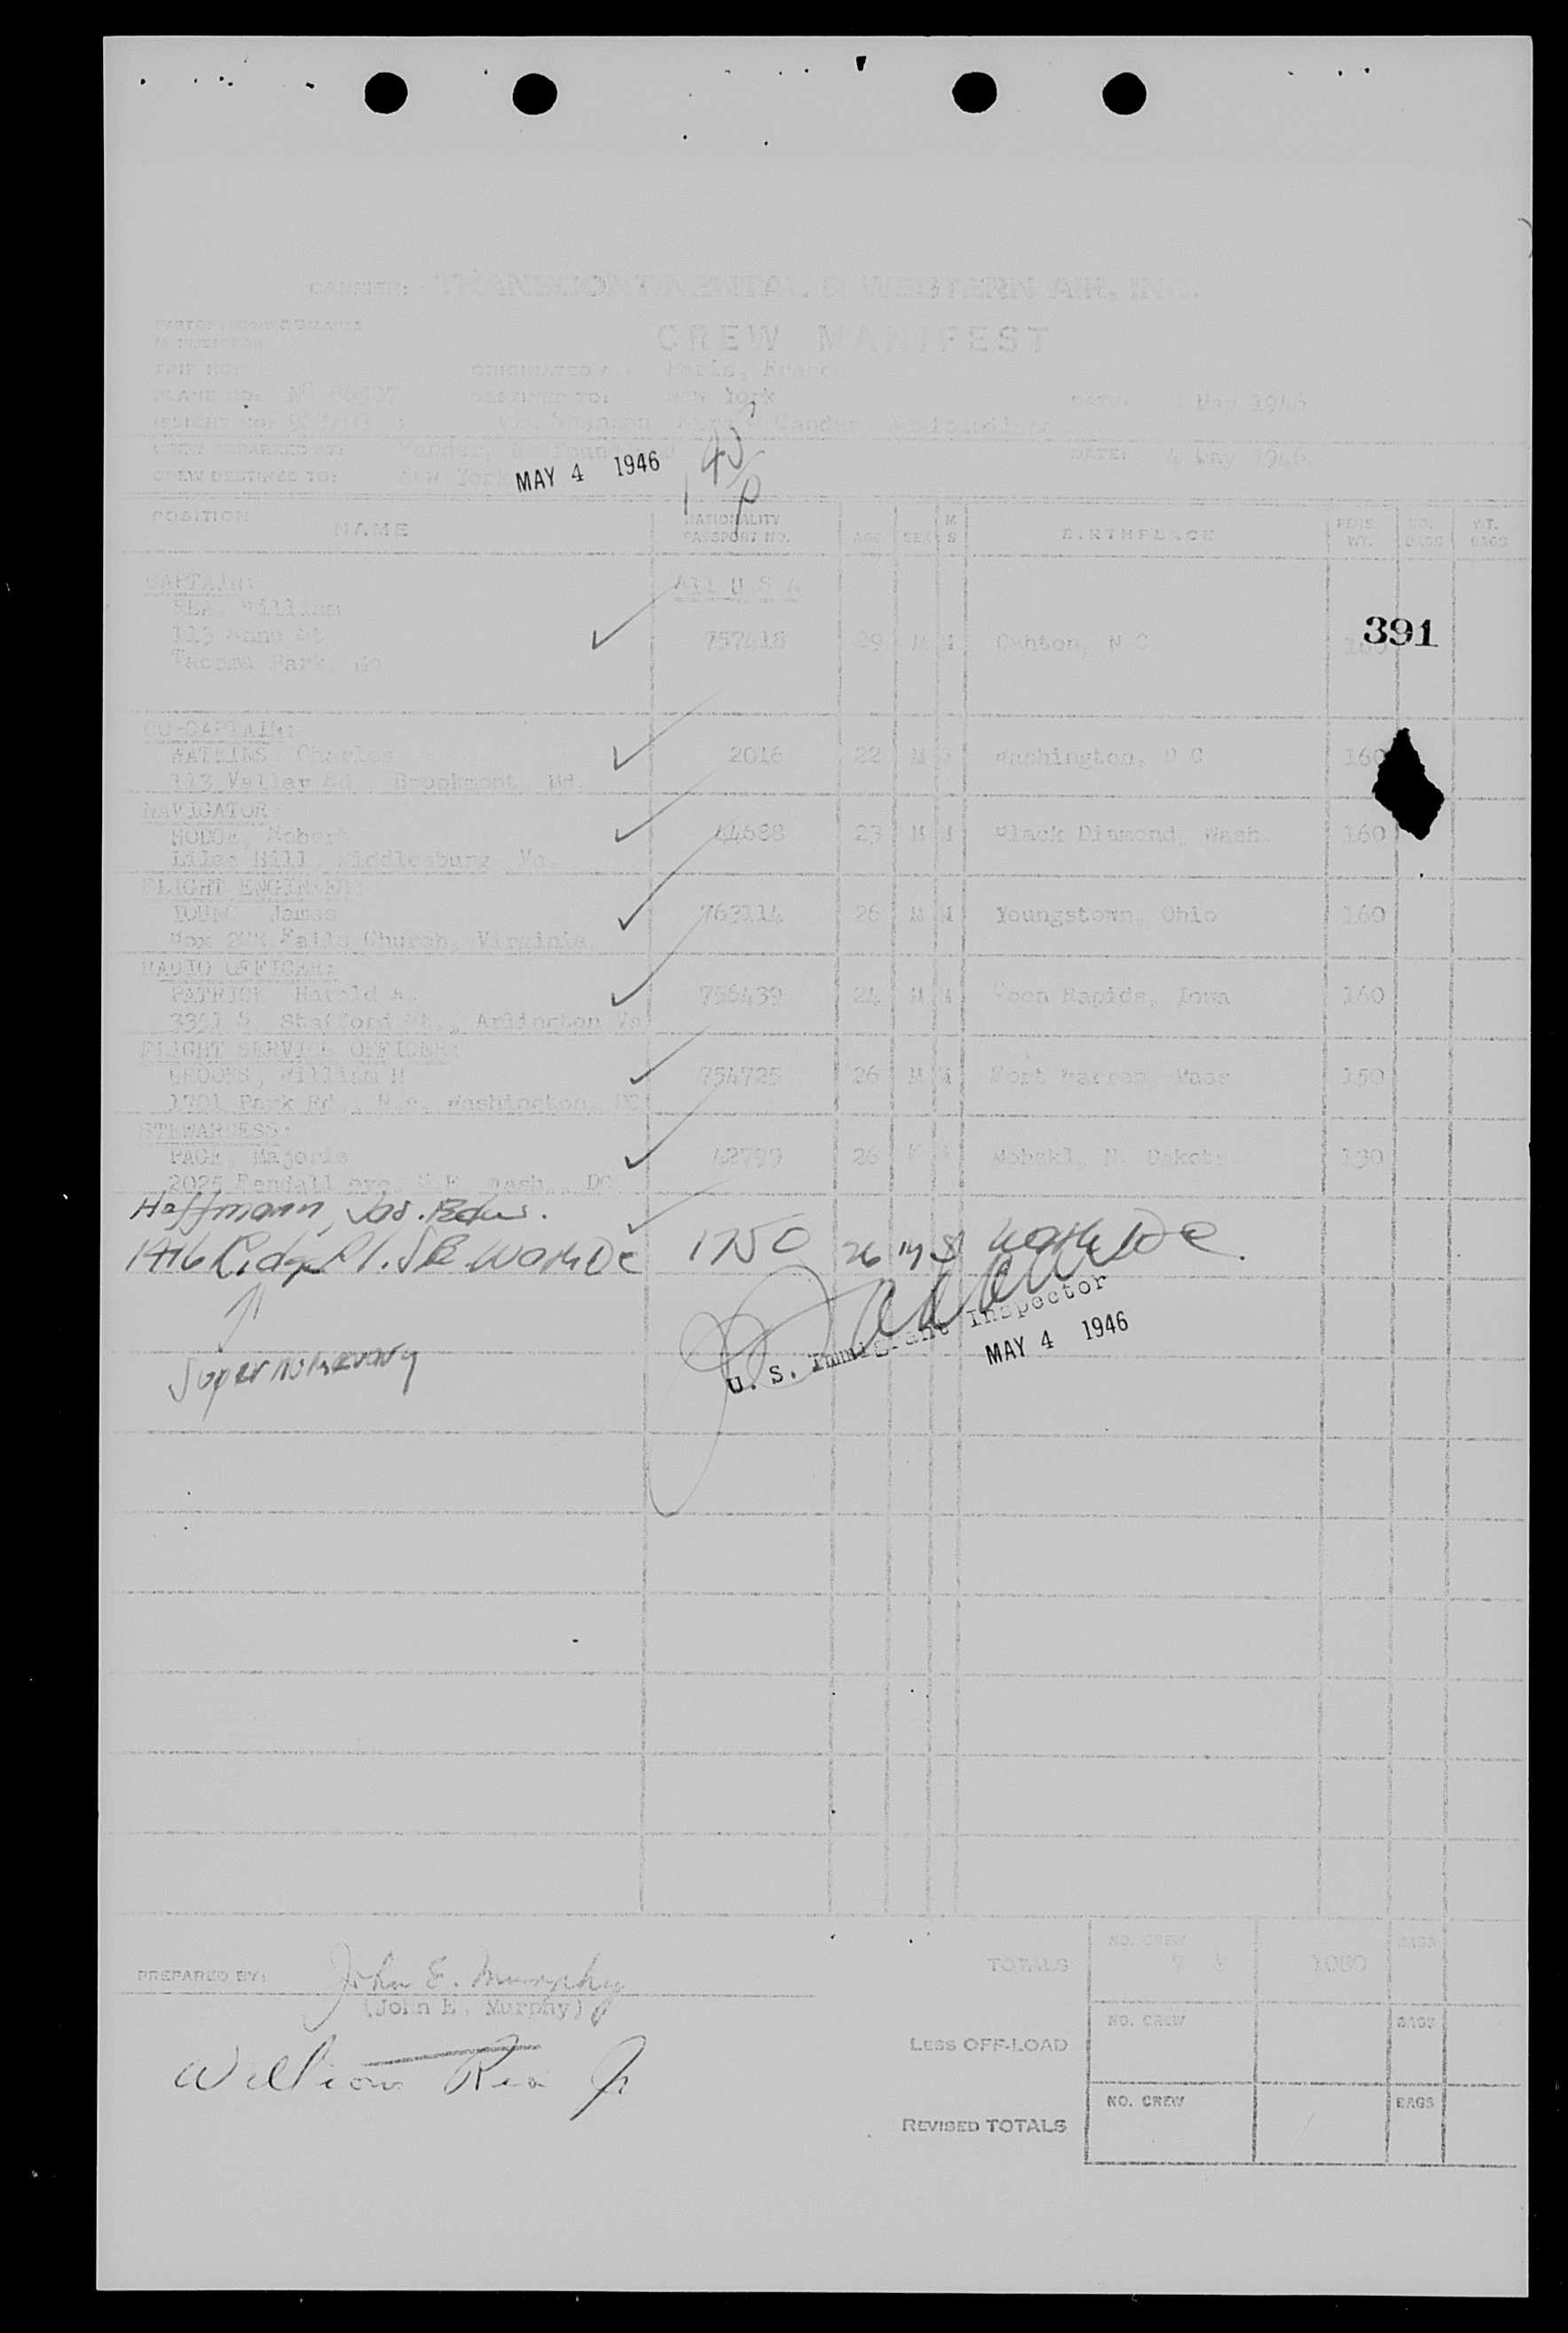 CARRIER: TRANSCONTINENTAL & WESTERN AIR, INC.
CREW MANIFEST
TRIP NO:
ORIGINATED AT: Paris, France
PLANE NO: NC 86507
DESTINED TO: New York
DATE: 3 May 1946
FLIGHT NO:
Via Shannon, Gander, Newfoundland
CREW EMBARKED AT: Gander, Newfoundland
DATE: 4 May 1946
CREW DESTINED TO: New York
MAY 4 1946
POSITION NAME NATIONALITY PASSPORT NO. AGE SEX M S BIRTHPLACE PERS. WT. NO. BAGS WT. BAGS
CAPTAIN: All U S A
REA, William
113 Anne St 757418 29 M M Canton, N C 160
391
Takoma Park, Md
CO-CAPTAIN:
WATKINS, Charles 2016 22 M Washington, D C 160
113 Valley Rd., Brookmont, Md.
NAVIGATOR:
Robert 44688 23 M M Black Diamond, Wash. 160
Hill, Middleburg, Va.
FLIGHT ENGINEER:
YOUNG, James 763114 26 M M Youngstown, Ohio 160
Box Falls Church, Virginia
RADIO OFFICER:
PATRICK, Harold A. 756439 24 M M Coon Rapids, Iowa 160
3351 S. Stafford St., Arlington Va
FLIGHT SERVICE OFFICER:
BROOKS, William H 754725 26 M M Fort Warren, Mass 150
1701 Park Rd., N.W. Washington, DC
STEWARDESS:
PAGE, Majorie 42799 26 F S N. Dakota 130
2025 Kendall ave, N.E. Wash., DC
Hoffmann, Jas. Edw.
1416 Ridge Pl. SE Wash DC 1750 26 M S Wash DC.
U. S. Immigrant Inspector
MAY 4 1946
Supernumerary
PREPARED BY: John E. Murphy
(John E. Murphy)
William Rea Jr
TOTALS NO. CREW 7 8 1080 BAGS
LESS OFF-LOAD NO. CREW BAGS
REVISED TOTALS NO. CREW BAGS